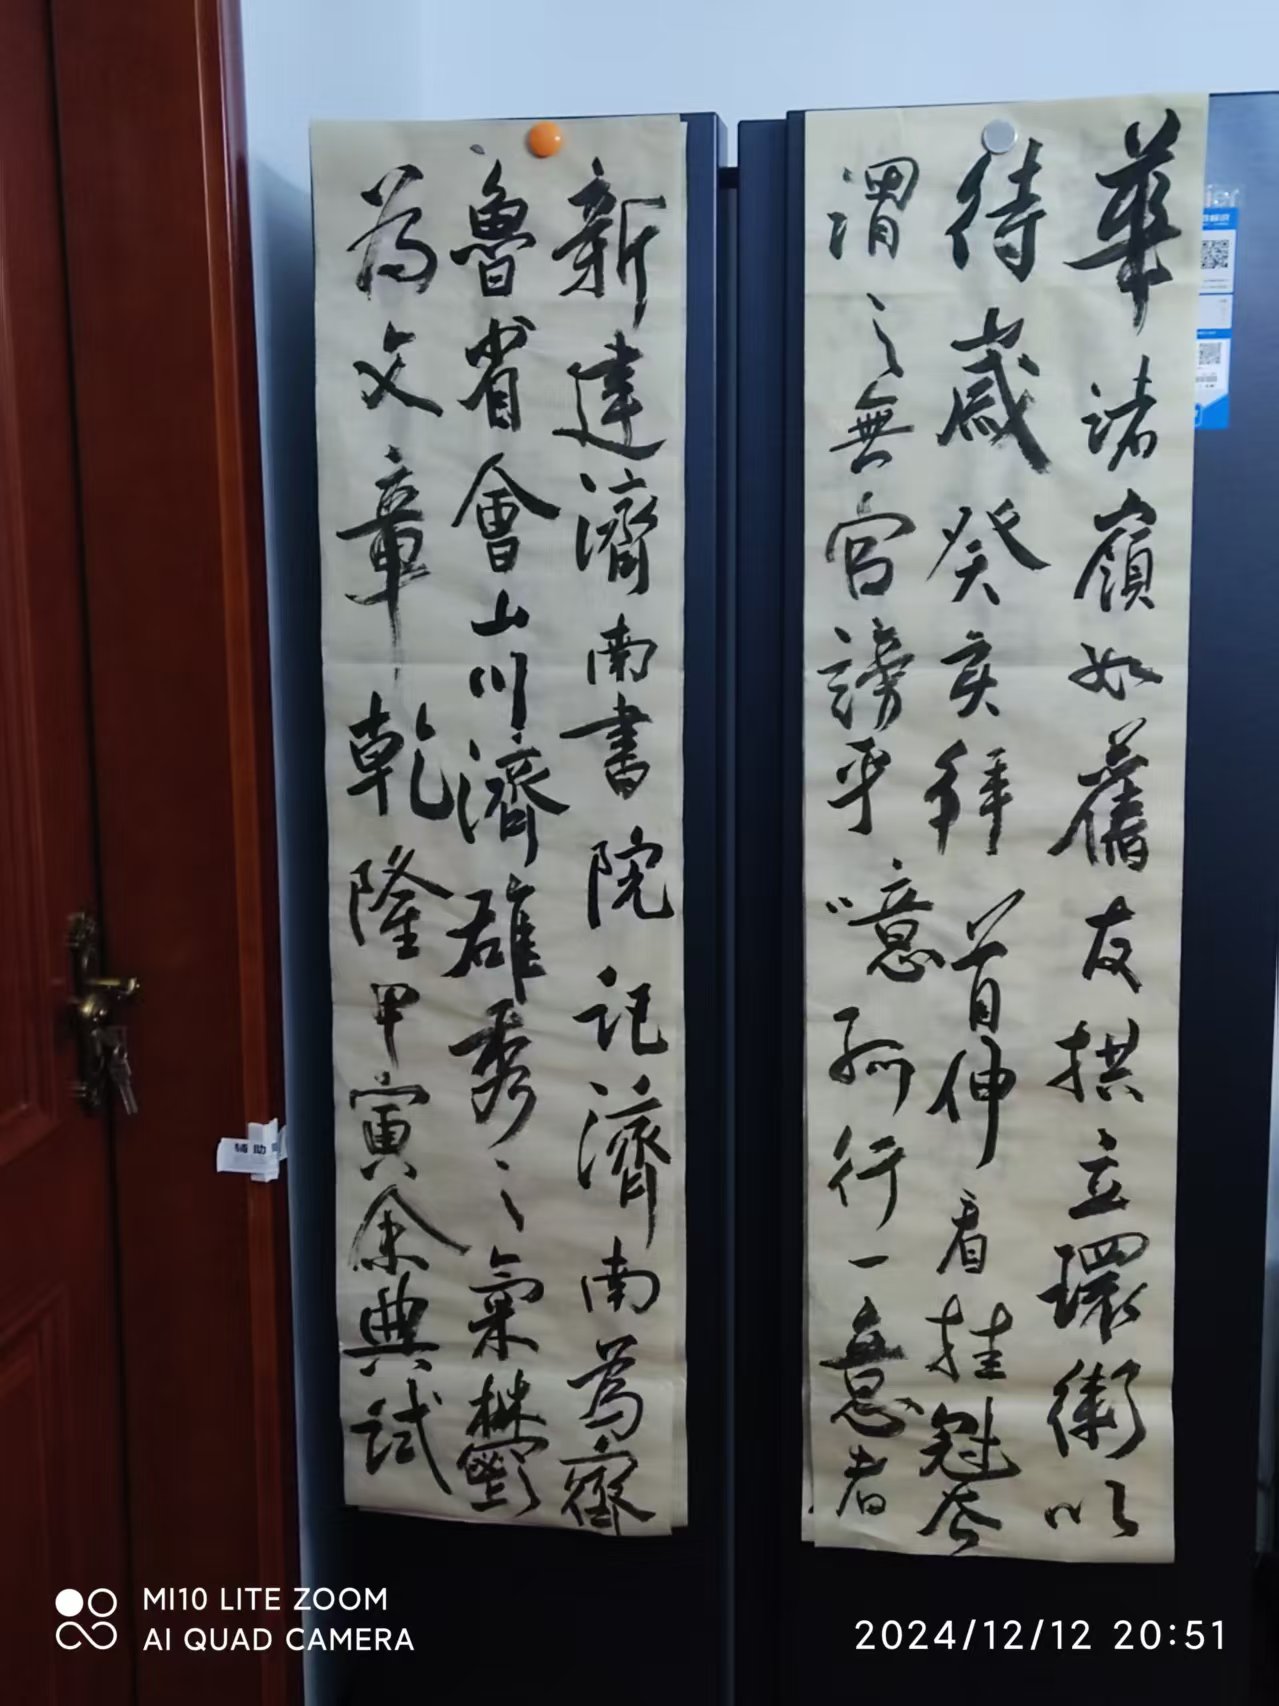 華諸嶺如舊友拱立環衛以
待歲癸亥拜首伸看挂冠
謂之無官謗乎噫孤行一意者
新建濟南書院記濟南為齊
魯省會山川濟雄秀之氣欝
為文章乾隆甲寅余典試
辅助
MI10 LITE ZOOM
AI QUAD CAMERA
2024/12/12 20:51